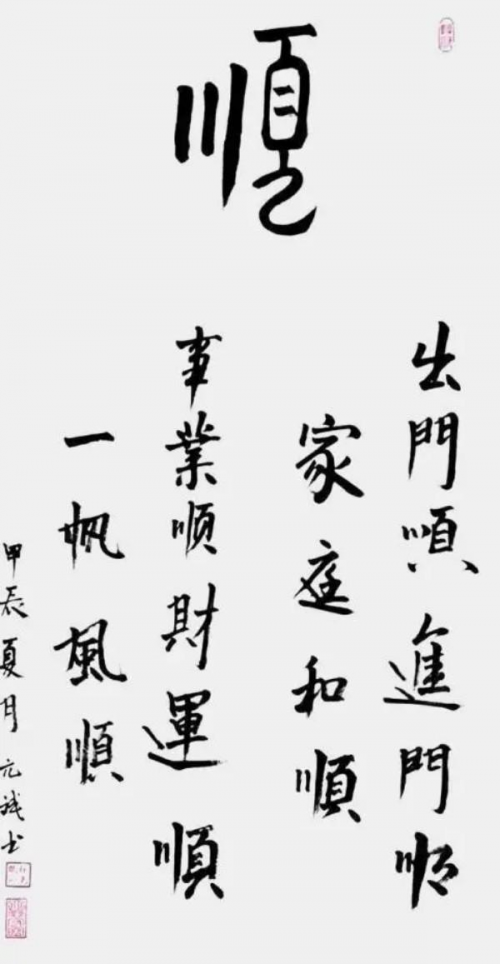 順
出門順進門順
家庭和順
事業順財運順
一帆風順
甲辰夏月元斌书